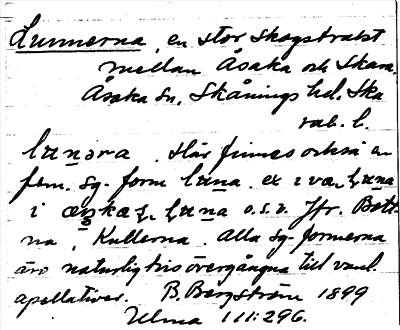 Lunnerna, en stor skogstrakt
mellan Åsaka och Skara.
Åsaka sn. Skånings hd. Ska
rab. l.
lunəra. Här finnes också en
fem. sg. form luna. ex i va luna
i æskaz luna o.s.v. Jfr. Bott-
na, Kullerna. Alla sg-formerna
äro naturligtvis övergångna till vanl.
apellativer. B. Bergström 1899
Ulma 111:296.